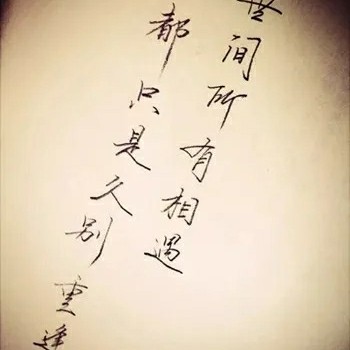 世间所有相遇
都只是久别重逢